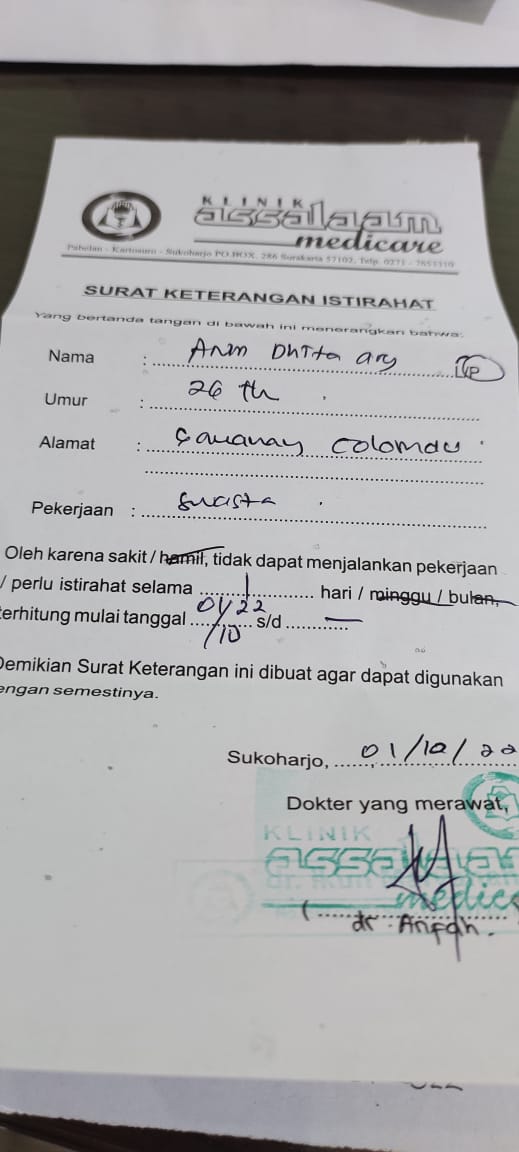 KLINIK
assalaam
medicare
Pabelan - Kartosuro - Sukoharjo PO.BOX. 286 Surakarta 57102, Telp. 0271 -
SURAT KETERANGAN ISTIRAHAT
Yang bertanda tangan di bawah ini menerangkan bahwa:
Nama : Dhita ary
Umur : 26 th
Alamat : Colomadu
Pekerjaan : Swasta
Oleh karena sakit / hamil, tidak dapat menjalankan pekerjaan
/ perlu istirahat selama 1 hari / minggu / bulan,
terhitung mulai tanggal 01/10 22 s/d —
Demikian Surat Keterangan ini dibuat agar dapat digunakan
engan semestinya.
Sukoharjo, 01/10/22
Dokter yang merawat,
KLINIK
assalaa
medic
( dr.